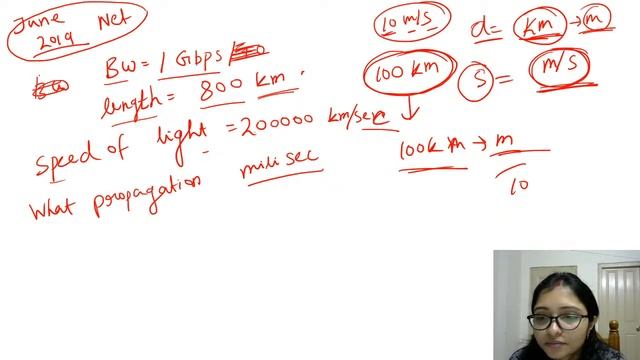 June Net
2019
BW = 1 Gbps
length = 800 km
Speed of light = 200000 km/sec
What propagation milisec
10 m/s
100 km
100km → m
10
d = km → m
s = m/s